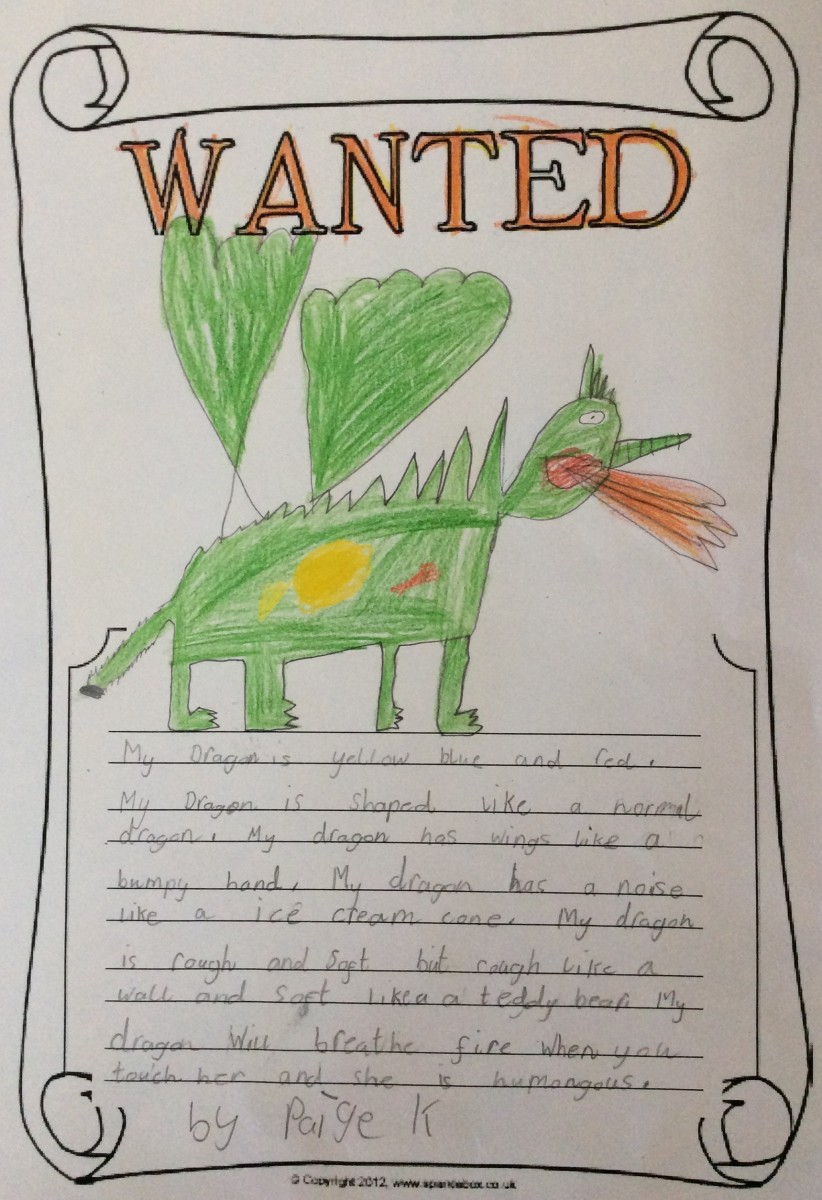 WANTED
My Dragon is yellow blue and red.
My Dragon is shaped like a normal
dragon. My dragon has wings like a
bumpy hand. My dragon has a noise
like a ice cream cone. My dragon
is rough and soft but rough like a
wall and soft like a a teddy bear. My
dragon will breathe fire when you
touch her and she is humongous.
by Paige K
© Copyright 2012, www.sparklebox.co.uk